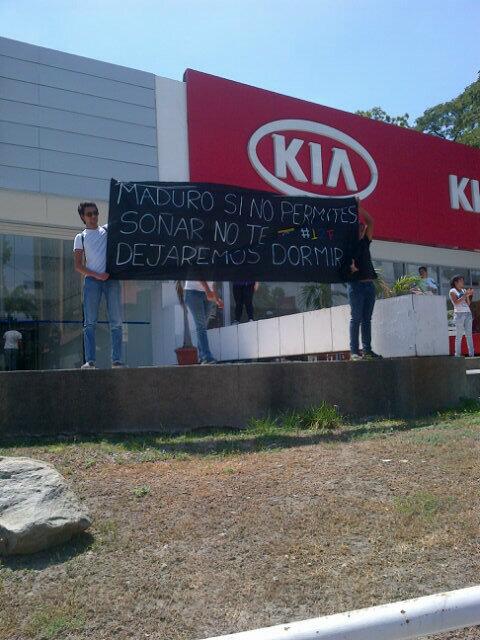 KIA
KI
MADURO SI NO PERMITES
SOÑAR NO TE
DEJAREMOS DORMIR